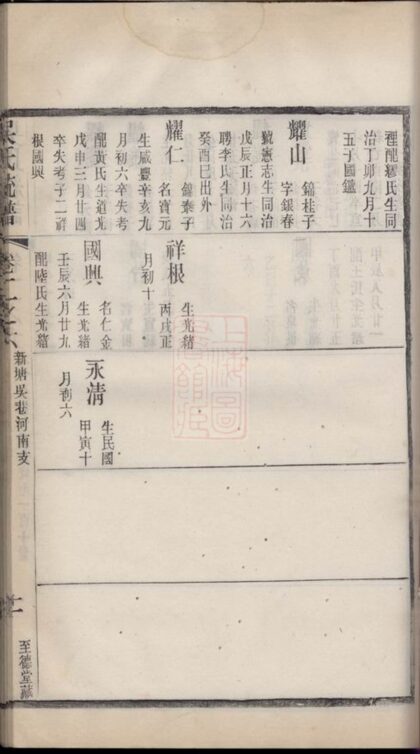 裡配繆氏生同
治丁卯九月十
五子國鑑
耀山
錦桂子
字銀春
號憲志生同治
戊辰正月十六
聘李氏生同治
癸酉巳出外
耀仁
錦泰子
名寶元
生咸豐辛亥九
月初六卒失考
配黃氏生道光
戊申三月廿四
卒失考子二祥
根國興
祥根
生光緒
丙戌正
月初十
國興
名仁金
生光緒
壬辰六月廿九
配陸氏生光緒
永清
生民國
甲寅十
月初六
吳氏統譜
新塘吳巷河南支
至德堂藏
上海圖
書館藏